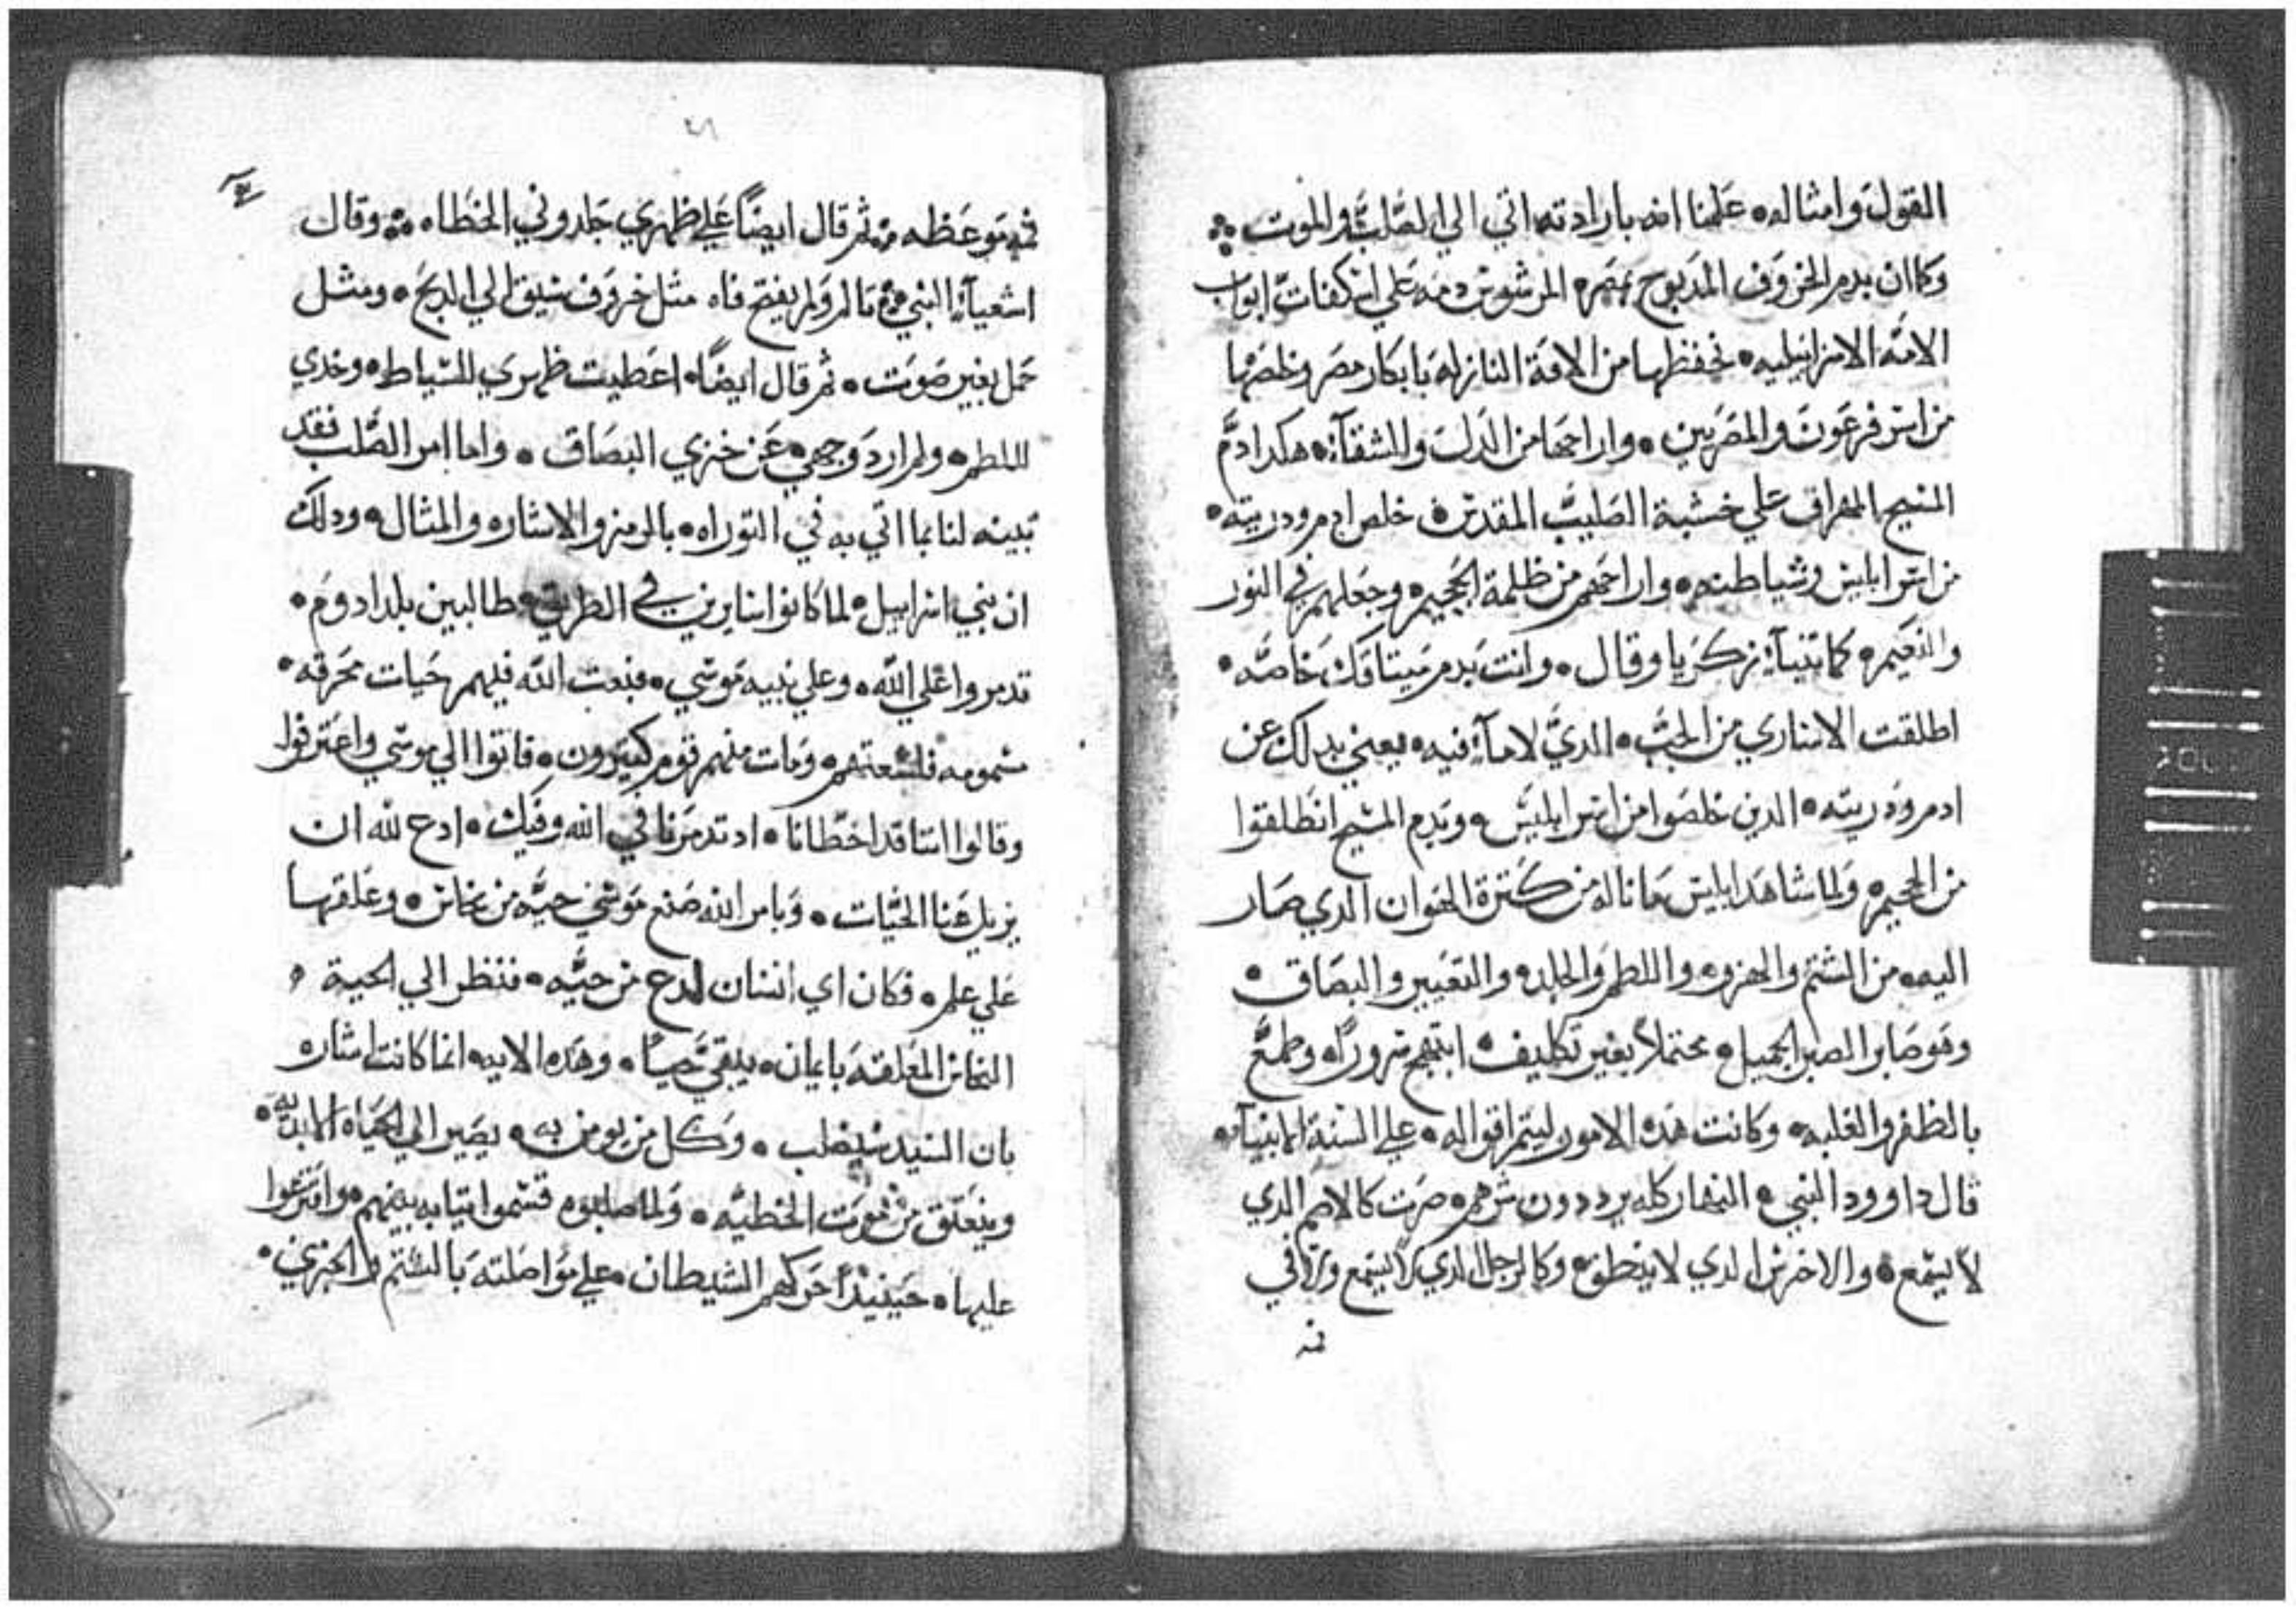 القول وامثاله • علمنا انه بارادته اتي الي الصلب والموت ∴
وكما ان بدم الخروف المدبوح بمصر المرشوش دمه علي اسكفات ابواب
الامة الاسراييليه • تحفظها من الافة النازله بابكار مصر وخلصها
من اسر فرعون والمصريين • واراحها من الدل والشقآء • هكدا دم
المسيح المهراق علي خشبة الصليب المقدس خلص ادم ودريته •
من اسر ابليس وشياطنه • واراحهم من ظلمة الجحيم • وجعلهم في النور
والنعيم • كما تنبآ زكريا وقال • وانت بدم ميتاقك خاصه •
اطلقت الاساري من الجب • الدي لا مآ فيه • يعني بدلك عن
ادم ودريته • الدين خلصوا من اسر ابليس • وبدم المسيح انطلقوا
من الجحيم • ولما شاهد ابليس ما ناله من كترة الهوان الدي صار
اليه • من الشتم والهزو • واللطم والجلد • والتعيير والبصاق •
وهو صابر الصبر الجميل • محتملاً بغير تكليف • ابتهج سروراً • وطمع
بالظفر والغلبه • وكانت هده الامور ليتم اقواله • علي السنة الانبيآء •
قال داوود النبي • النهار كله يرددون شرهم • صرت كالاصم الدي
لا يسمع • والاخرس الدي لا ينطق • وكالرجل الدي لا يسمع ولا في
فمه
٤٦
في فمه توعظه ∴ ثم قال ايضاً علي ظهري جلدوني الخطاه ∴ وقال
اشعيآء النبي ∴ تالم ولم يفتح فاه مثل خروف سيق الي الدبح • ومثل
حمل بغير صوت • ثم قال ايضاً • اعطيت ظهري للسياط • وخدي
للطم • ولم ارد وجهي • عن خزي البصاق • واما امر الصلب فقد
تبينه لنا بما اتي به في التوراه • بالرمز والاشاره والمثال • ودلك
ان بني اسراييل • لما كانوا سايرين في الطريق • طالبين بلد ادوم •
تدمروا علي الله • وعلي نبيه موسي • فبعت الله فيهم حيات محرقه •
مسمومه فلسعتهم • ومات منهم قوم كتيرون • فاتوا الي موسي واعترفوا
وقالوا اننا قد اخطانا • اد تدمرنا في الله وفيك • ادع لله ان
يزيل عنا الحيات • وبامر الله صنع موسي حيه من نحاس • وعلقها
علي علم • فكان اي انسان لدع من حيه • فنظر الي الحية •
النحاس المعلقه بايمان • يبقي حياً • وهده الايه انما كانت اشاره
بان السيد سيصلب • وكل من يومن به • يصير الي الحياه الابديه •
وينعتق من موت الخطيه • ولما صلبوه قسموا تيابه بينهم • واقترعوا
عليها • حينيد احركهم الشيطان • علي مواصلته بالشتم والخزي •